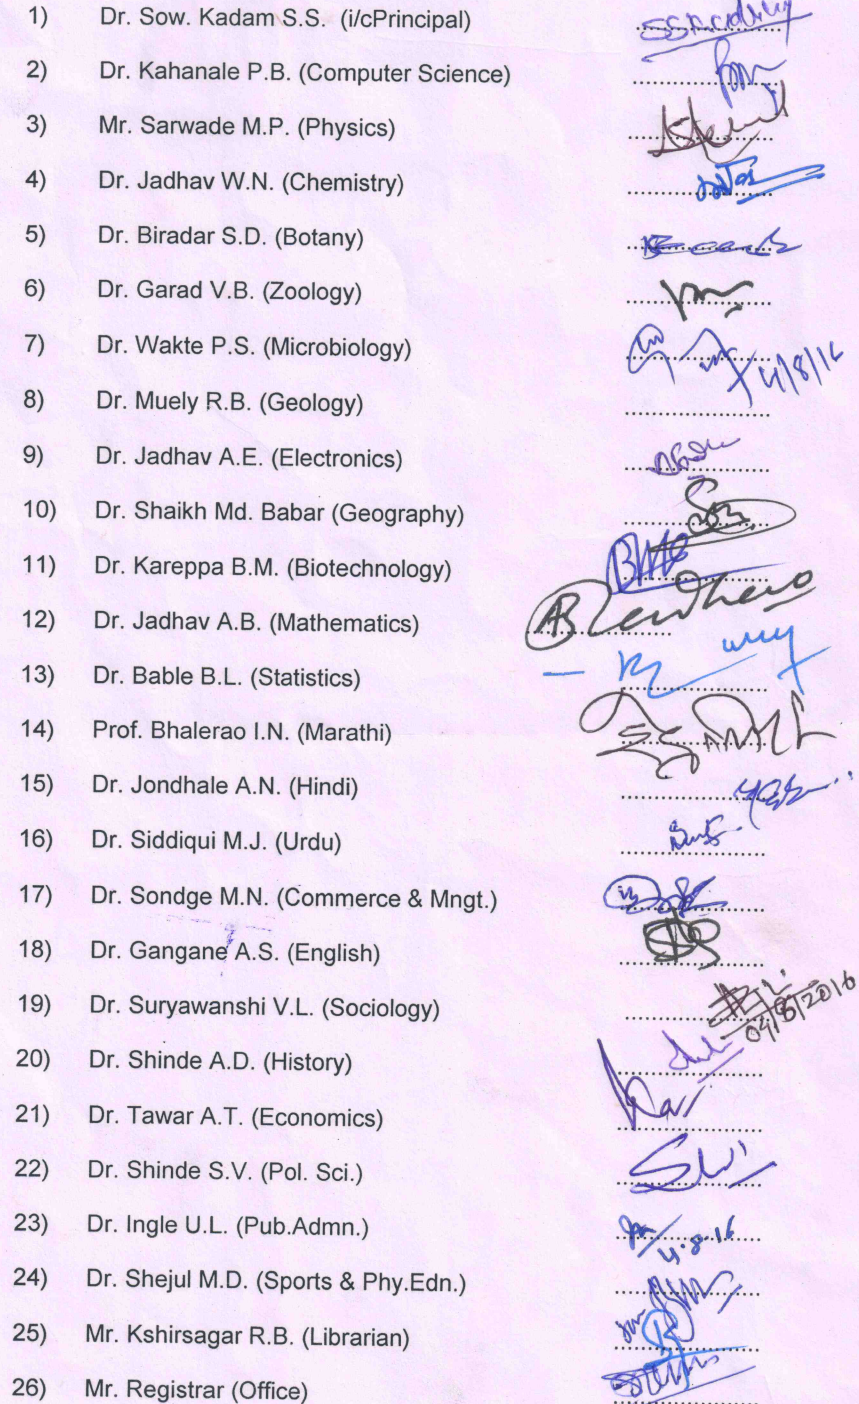 1) Dr. Sow. Kadam S.S. (i/cPrincipal)
2) Dr. Kahanale P.B. (Computer Science)
3) Mr. Sarwade M.P. (Physics)
4) Dr. Jadhav W.N. (Chemistry)
5) Dr. Biradar S.D. (Botany)
6) Dr. Garad V.B. (Zoology)
7) Dr. Wakte P.S. (Microbiology) 4/8/16
8) Dr. Muely R.B. (Geology)
9) Dr. Jadhav A.E. (Electronics)
10) Dr. Shaikh Md. Babar (Geography)
11) Dr. Kareppa B.M. (Biotechnology)
12) Dr. Jadhav A.B. (Mathematics)
13) Dr. Bable B.L. (Statistics)
14) Prof. Bhalerao I.N. (Marathi)
15) Dr. Jondhale A.N. (Hindi)
16) Dr. Siddiqui M.J. (Urdu)
17) Dr. Sondge M.N. (Commerce & Mngt.)
18) Dr. Gangane A.S. (English)
19) Dr. Suryawanshi V.L. (Sociology) 04/8/2016
20) Dr. Shinde A.D. (History)
21) Dr. Tawar A.T. (Economics)
22) Dr. Shinde S.V. (Pol. Sci.)
23) Dr. Ingle U.L. (Pub.Admn.) 4.8.16
24) Dr. Shejul M.D. (Sports & Phy.Edn.)
25) Mr. Kshirsagar R.B. (Librarian)
26) Mr. Registrar (Office)